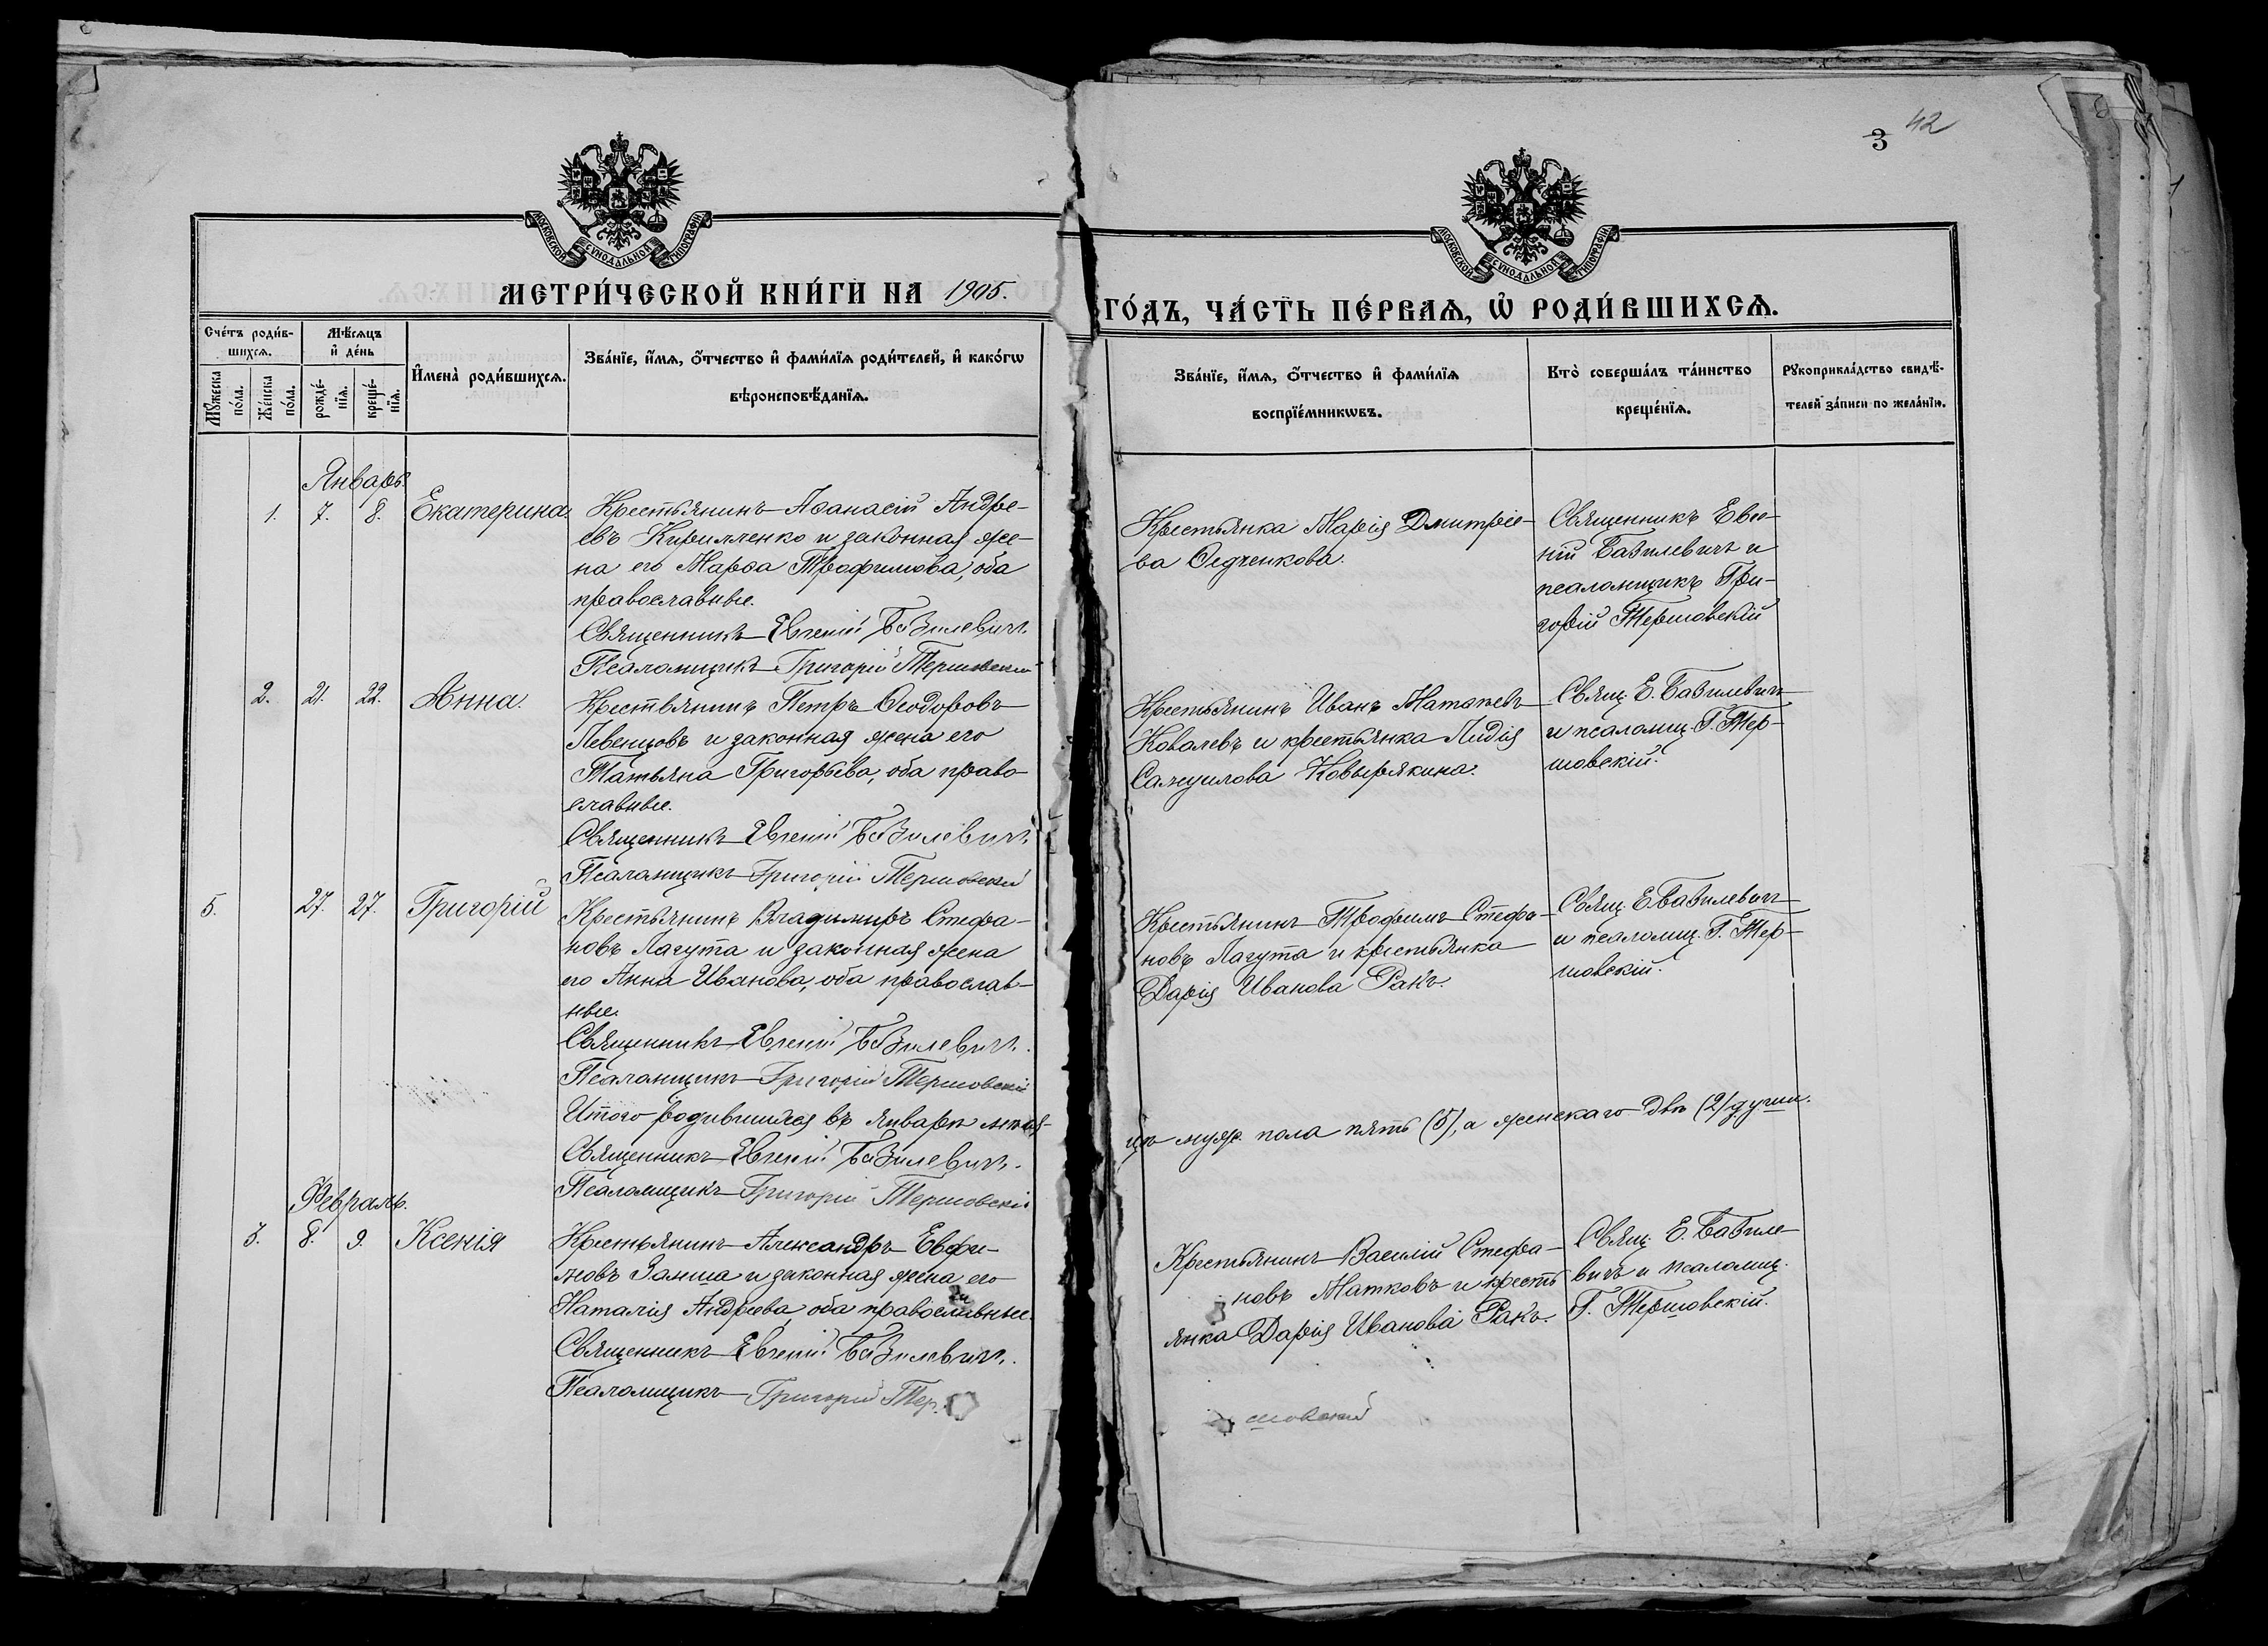 3 42
МОСКОВСКОЙ СУНОДАЛЬНОЙ ТИПОГРАФІИ
МОСКОВСКОЙ СУНОДАЛЬНОЙ ТИПОГРАФІИ
МЕТРИ́ЧЕСКОЙ КНИ́ГИ НА 1905.
ГО́ДЪ, ЧА́СТЬ ПЕ́РВАѦ, Ѡ РОДИ́ВШИХСѦ.
Сче́тъ роди́в-
шихсѧ.
Мꙋ́жеска по́ла.
Же́нска по́ла.
Мѣ́сѧцъ
и де́нь
рожде́-
нїѧ.
креще́-
нїѧ.
Имена̀ роди́вшихсѧ.
Зва́нїе, и́мѧ, о́тчество и фами́лїѧ роди́телей, и како́гѡ
вѣроисповѣ́данїѧ.
Зва́нїе, и́мѧ, о́тчество и фами́лїѧ
воспрїе́мникѡвъ.
Кто̀ соверша́лъ та́инство
креще́нїѧ.
Рꙋкоприкла́дство свидѣ́-
телей за́писи по жела́нїю.
Январь.
1. 7. 8. Екатерина.
Крестьянинъ Аѳанасій Андре-
евъ Кириленко и законная же-
на его Марѳа Трофимова, оба
православные.
Священникъ Евгеній Базилевичъ.
Псаломщикъ Григорій Тершовскій
Крестьянка Марія Дмитріе-
ва Ѳедченкова.
Священникъ Евге-
ній Базилевичъ и
псаломщикъ Гри-
горій Тершовскій
2. 21. 22. Анна.
Крестьянинъ Петръ Ѳеодоровъ
Левенцовъ и законная жена его
Татьяна Григорьева, оба право-
славные.
Священникъ Евгеній Базилевичъ.
Псаломщикъ Григорій Тершовскій
Крестьянинъ Иванъ Матѳеевъ
Ковалевъ и крестьянка Лидія
Самуилова Ковырякина.
Свящ. Е. Базилевичъ
и псаломщ. Г. Тер-
шовскій.
5. 27. 27. Григорій
Крестьянинъ Владиміръ Стефа-
новъ Лагута и законная жена
его Анна Иванова, оба православ-
ные.
Священникъ Евгеній Базилевичъ.
Псаломщикъ Григорій Тершовскій
Крестьянинъ Трофимъ Стефа-
новъ Лагута и крестьянка
Дарія Иванова Ракъ.
Свящ. Е. Базилевичъ
и псаломщ. Г. Тер-
шовскій.
Итого родившихся въ Январѣ мѣся-
цѣ муж. пола пять (5), а женскаго двѣ (2) души.
Священникъ Евгеній Базилевичъ.
Псаломщикъ Григорій Тершовскій
Февраль.
3. 8. 9. Ксенія
Крестьянинъ Александръ Евфи-
мовъ Замша и законная жена его
Наталія Андреева, оба православные.
Священникъ Евгеній Базилевичъ.
Псаломщикъ Григорій Тер-
шовскій
Крестьянинъ Василій Стефа-
новъ Матковъ и кресть-
янка Дарія Иванова Ракъ.
Свящ. Е. Базиле-
вичъ и псаломщ.
Г. Тершовскій.